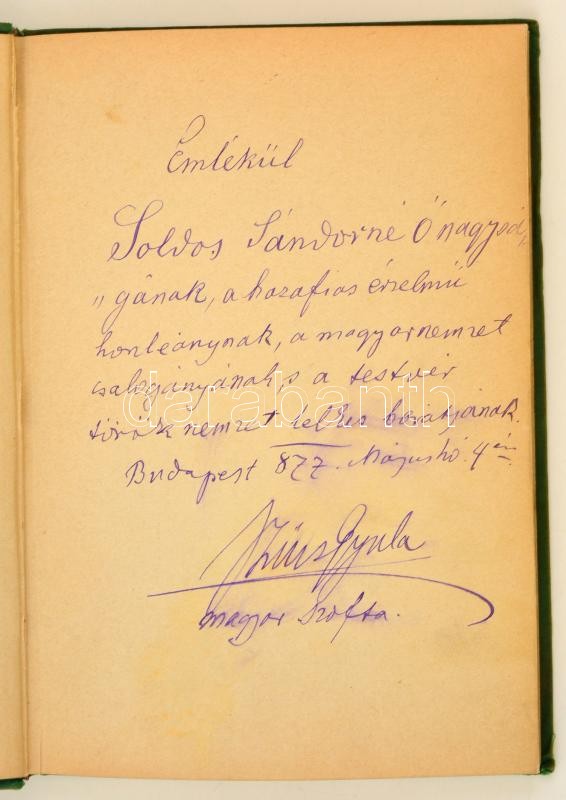 Emlékül
Soldos Sándorné Ő nagysá„
„gának, a hazafias érzelmü
honleánynak, a magyarnemzet
csalogányának, s a testvér
török nemzet lelkes barátjának.
Budapest 877. Májushó 4én
Szüts Gyula
magyar szofta.
darabanth